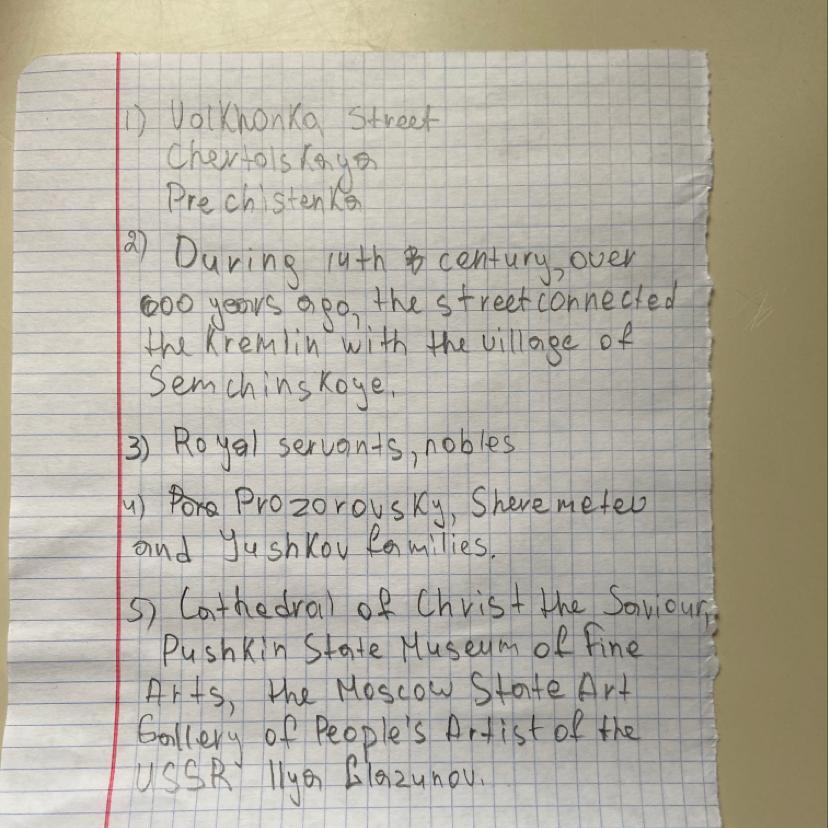 1) Volkhonka Street
Chertolskaya
Prechistenka
2) During 14th century, over
600 years ago, the street connected
the Kremlin with the village of
Semchinskoye.
3) Royal servants, nobles
4) Prozorovsky, Sheremetev
and Yushkov families.
5) Cathedral of Christ the Saviour,
Pushkin State Museum of Fine
Arts, the Moscow State Art
Gallery of People's Artist of the
USSR Ilya Glazunov.